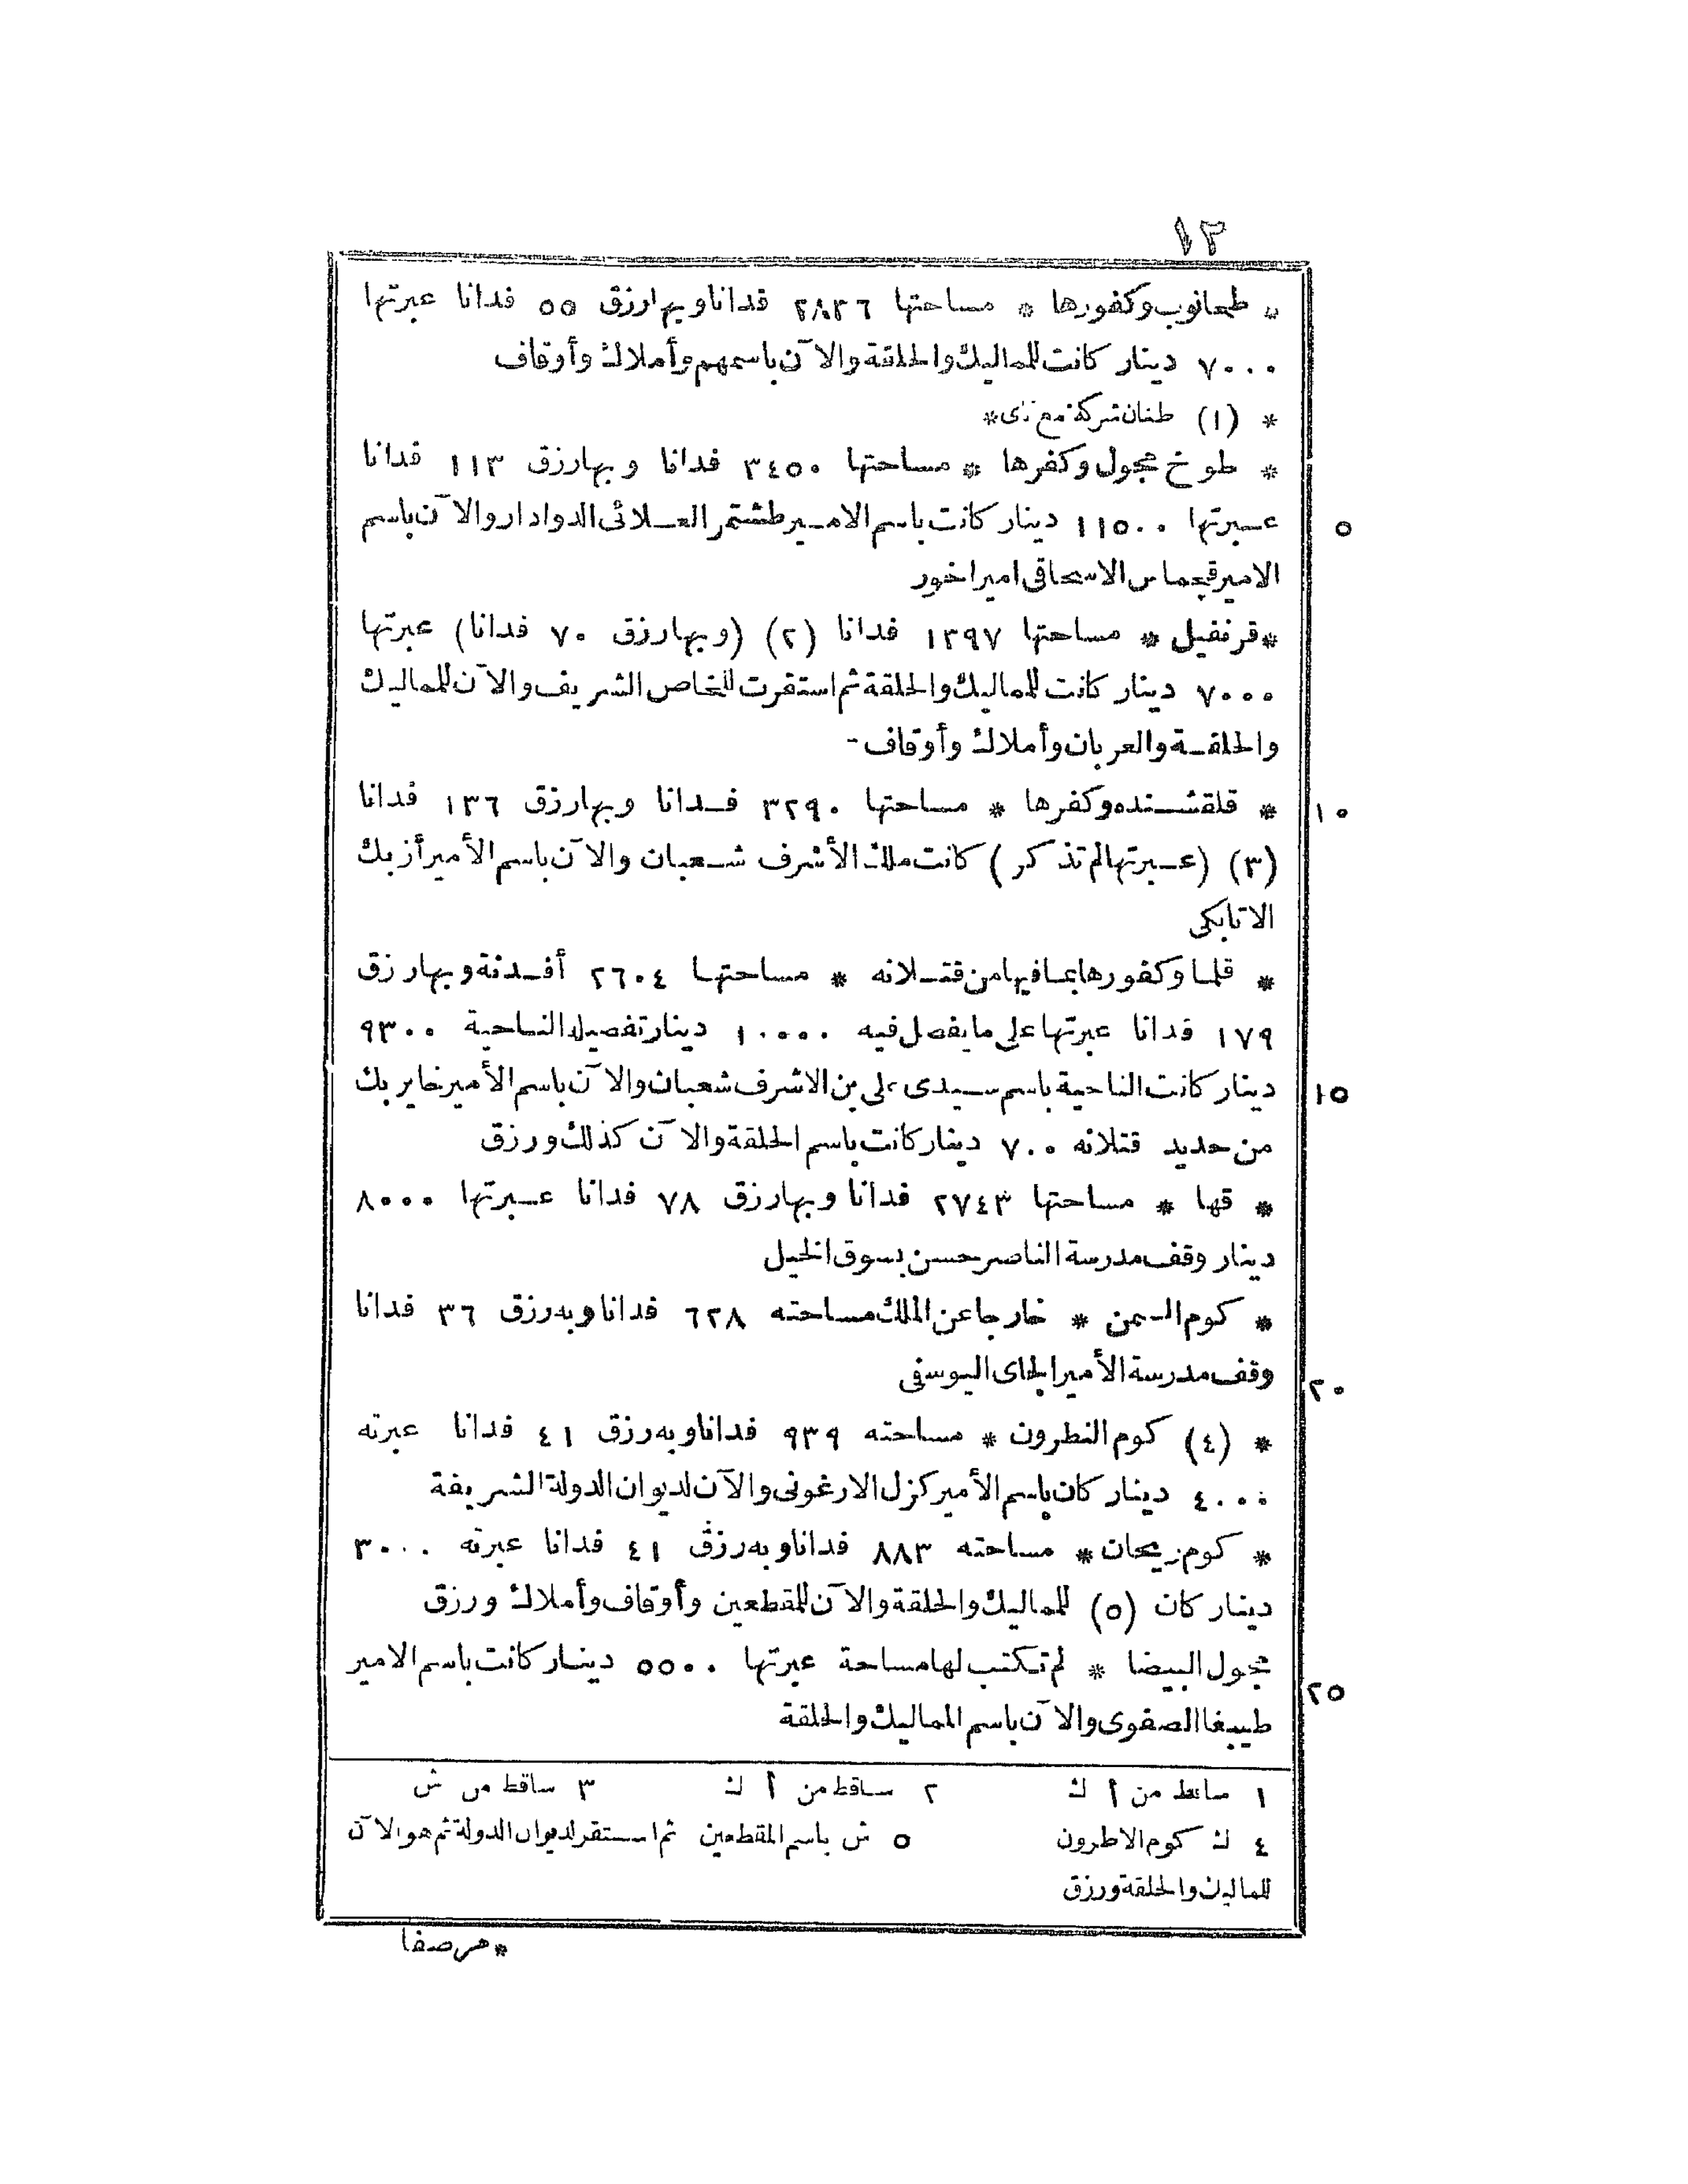 ١٢
* طحانوب وكفورها * مساحتها ٢٨٣٦ فدانا وبها رزق ٥٥ فدانا عبرتها
٧٠٠٠ دينار كانت للمماليك والحلقة والآن باسمهم وأملاك وأوقاف
* (١) طنان شركة مع *
* طوخ مجول وكفرها * مساحتها ٣٤٥٠ فدانا وبها رزق ١١٣ فدانا
عـبرتها ١١٥٠٠ دينار كانت باسم الامـير طشتمر العـلائى الدوادار والآن باسم
٥
الامير قجماس الاسحاقى امير اخور
*قرنفيل * مساحتها ١٣٩٧ فدانا (٢) (وبها رزق ٧٠ فدانا) عبرتها
٧٠٠٠ دينار كانت للمماليك والحلقة ثم استقرت للخاص الشريف والآن للمماليك
والحلقـة والعربان وأملاك وأوقاف -
* قلقشـنده وكفرها * مساحتها ٣٢٩٠ فـدانا وبها رزق ١٣٦ فدانا
١٠
(٣) (عـبرتها لم تذكر) كانت ملك الأشرف شـعبان والآن باسم الأمير أزبك
الاتابكى
* قلما وكفورها بما فيها من قتـلانه * مساحتها ٢٦٠٤ أفـدنة وبها رزق
١٧٩ فدانا عبرتها على ما يفصل فيه ١٠٠٠٠ دينار تفصيله الناحية ٩٣٠٠
دينار كانت الناحية باسم سـيدى على بن الاشرف شعبان والآن باسم الأمير خاير بك
١٥
من حديد قتلانه ٧٠٠ دينار كانت باسم الحلقة والآن كذلك ورزق
* قها * مساحتها ٢٧٤٣ فدانا وبها رزق ٧٨ فدانا عـبرتها ٨٠٠٠
دينار وقف مدرسة الناصر حسن بسوق الخيل
* كوم السمن * خارجا عن الملك مساحته ٦٢٨ فدانا وبه رزق ٣٦ فدانا
وقف مدرسة الأمير الجاى اليوسفى
٢٠
* (٤) كوم النطرون * مساحته ٩٣٩ فدانا وبه رزق ٤١ فدانا عبرته
٤٠٠٠ دينار كان باسم الأمير كزل الارغونى والآن لديوان الدولة الشريفة
* كوم ريحان * مساحته ٨٨٣ فدانا وبه رزق ٤١ فدانا عبرته ٣٠٠٠
دينار كان (٥) للمماليك والحلقة والآن للمقطعين وأوقاف وأملاك ورزق
مجول البيضا * لم تكتب لها مساحة عبرتها ٥٥٠٠ دينار كانت باسم الامير
٢٥
طيبغا الصفوى والآن باسم المماليك والحلقة
١ ساقط من أ ك ٢ ساقط من أ ك ٣ ساقط من ش
٤ ك كوم الاطرون ٥ ش باسم المقطعين ثم استقر لديوان الدولة ثم هو الآن
للمماليك والحلقة ورزق
* مرصفا